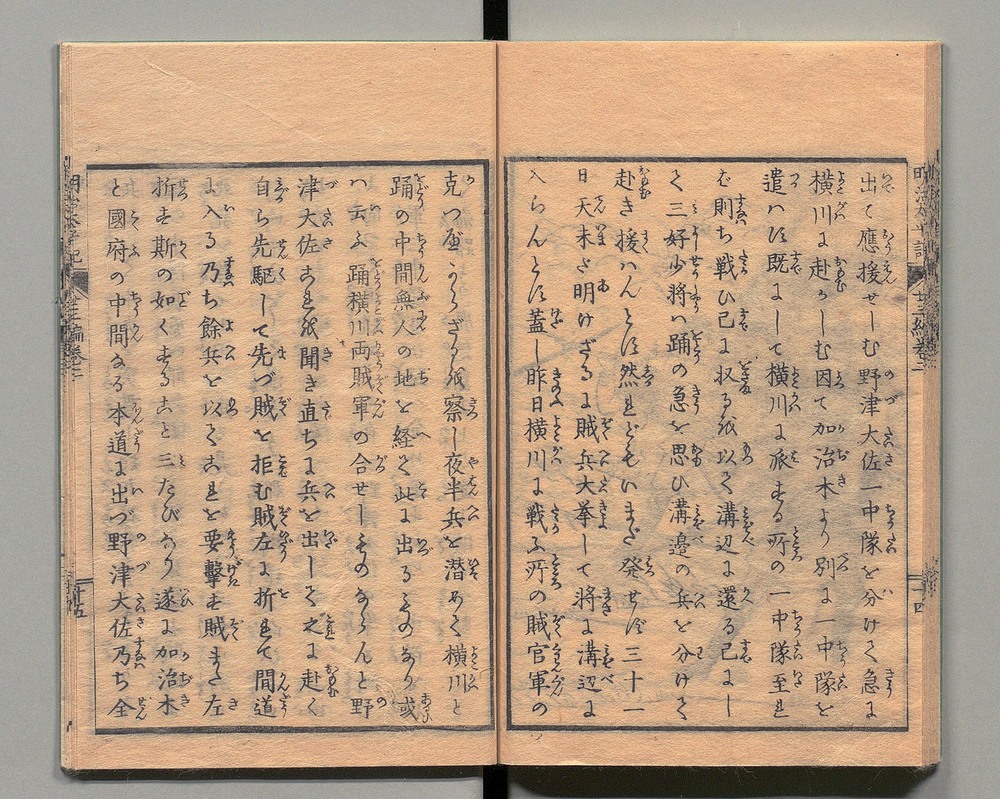 出て應援せしむ野津大佐一中隊を分けて急に
横川に赴かしむ因て加治木より別に一中隊を
遣はす既にして横川に派する所の一中隊至れ
ば則ち戦ひ已に収る紙以て溝辺に還る已にし
て三好少将は踊の急を思ひ溝邉の兵を分けて
赴き援はんとす然れどもいまだ発せず三十一
日天未だ明けざるに賊兵大挙して将に溝辺に
入らんとす蓋し昨日横川に戦ふ所の賊官軍の
克つ可からざるを察し夜半兵を潜めて横川と
踊の中間無人の地を経て此に出るものなり或
は云ふ踊横川両賊軍の合せしものならんと野
津大佐これを聞き直ちに兵を出して之に赴く
自ら先駆して先づ賊を拒む賊左に折れて間道
に入る乃ち餘兵を以てこれを要撃す賊また左
折す斯の如くすること三たびなり遂に加治木
と國府の中間なる本道に出づ野津大佐乃ち全